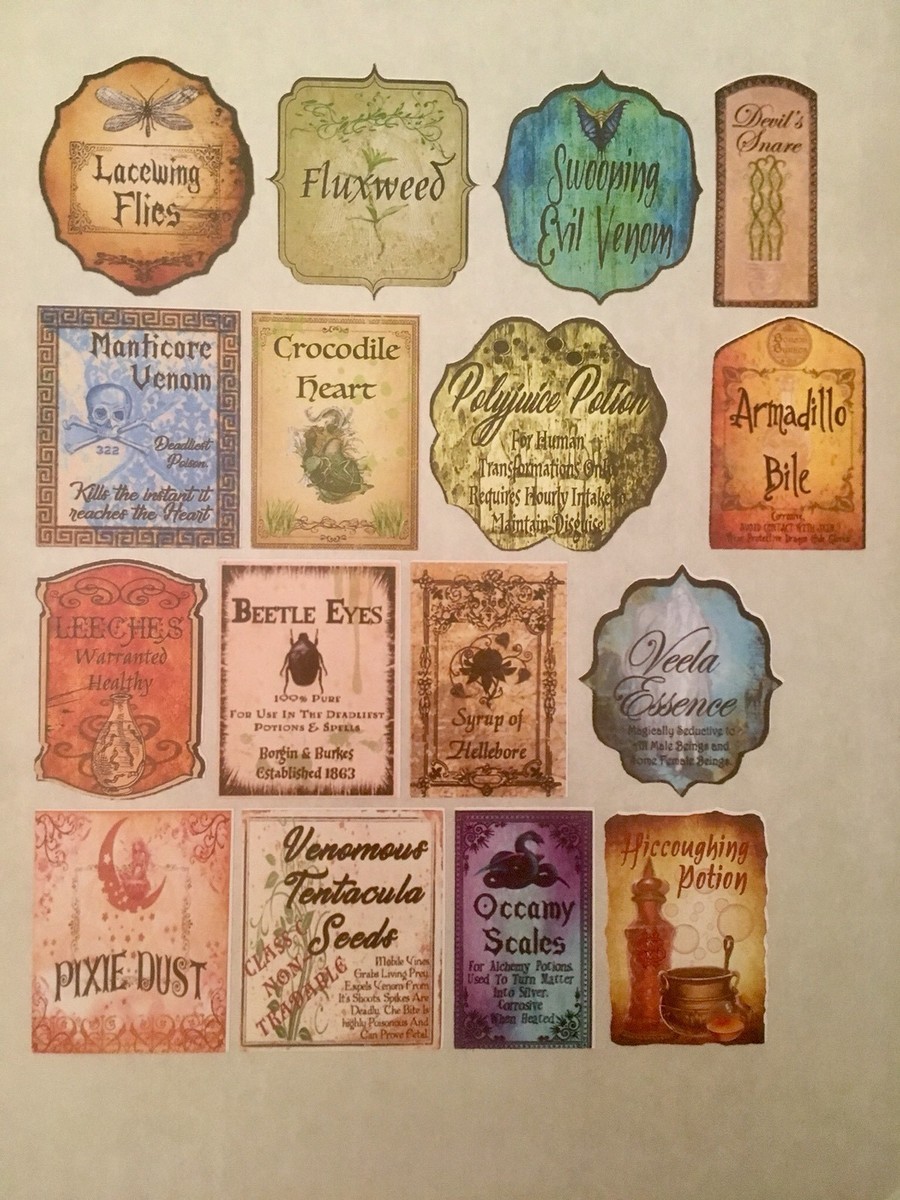 Lacewing
Flies
Fluxweed
Swooping
Evil Venom
Devil's
Snare
Manticore
Venom
322
Deadliest
Poison.
Kills the instant it
reaches the Heart
Crocodile
Heart
Polyjuice Potion
For Human
Transformations Only
Requires Hourly Intake to
Maintain Disguise
Armadillo
Bile
Corrosive.
AVOID CONTACT WITH SKIN
Protective Dragon Hide Gloves
LEECHES
Warranted
Healthy
BEETLE EYES
100% PURE
FOR USE IN THE DEADLIEST
POTIONS & SPELLS
Borgin & Burkes
Established 1863
Syrup of
Hellebore
Veela
Essence
Magically Seductive to
all Male Beings and
Some Female Beings.
PIXIE DUST
Venomous
Tentacula
Seeds
CLASS C
NON
TRADABLE
Mobile Vines
Grabs Living Prey.
Expels Venom From
It's Shoots. Spikes Are
Deadly. The Bite Is
highly Poisonous And
Can Prove Fatal.
Occamy
Scales
For Alchemy Potions.
Used To Turn Matter
Into Silver.
Corrosive
When Heated
Hiccoughing
Potion